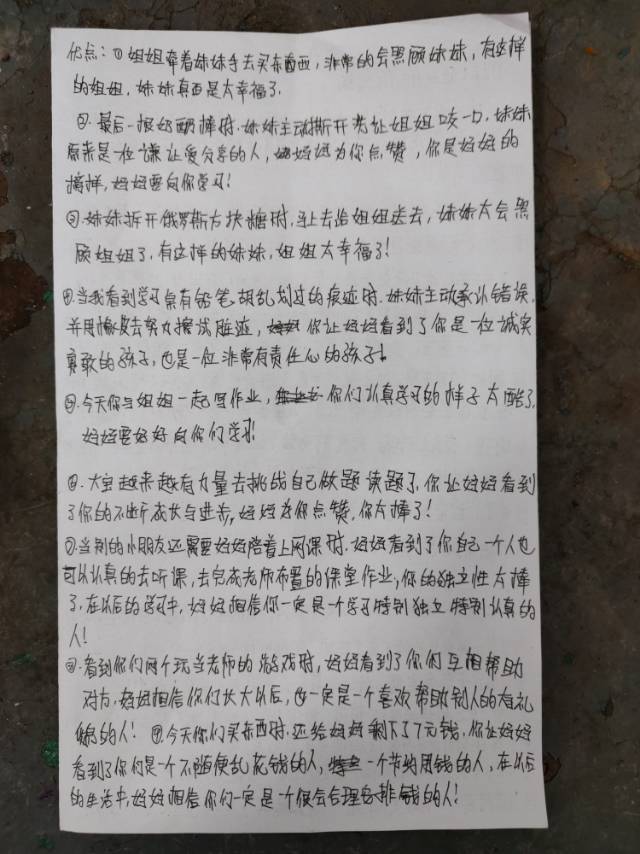 优点：①姐姐牵着妹妹手去买东西，非常的会照顾妹妹，有这样
的姐姐，妹妹真西是太幸福了.
②.最后一根奶酪棒时.妹妹主动撕开先让姐姐咬一口，妹妹
原来是一位谦让爱分享的人，妈妈为你点赞，你是妈妈的
榜样，妈妈要向你学习！
③.妹妹拆开俄罗斯方块糖时.马上去给姐姐送去，妹妹太会照
顾姐姐了，有这样的妹妹，姐姐太幸福了！
④.当我看到学习桌有铅笔胡乱划过的痕迹时.妹妹主动承认错误，
并用橡皮去努力擦试脏迹，你让妈妈看到了你是一位诚实
勇敢的孩子，也是一位非常有责任心的孩子！
⑤.今天你与姐姐一起写作业，你们认真学习的样子太酷了，
妈妈要好好向你们学习！
⑥.大宝越来越有力量去挑战自己做题读题了，你让妈妈看到
了你的不断成长与进步，妈妈为你点赞，你太棒了！
⑦.当别的小朋友还需要妈妈陪着上网课时.妈妈看到了你自己一个人也
可以认真的去听课，去完成老师布置的课堂作业，你的独立性太棒
了，在以后的学习中，妈妈相信你一定是个学习特别独立特别认真的
人！
⑧.看到你们两个玩当老师的游戏时，妈妈看到了你们互相帮助
对方，妈妈相信你们长大以后，也一定是一个喜欢帮助别人的有礼
貌的人！⑨.今天你们买东西时.还给妈妈剩下了7元钱，你让妈妈
看到了你们是一个不随便乱花钱的人，一个节约用钱的人，在以后
的生活中，妈妈相信你们一定是一个很会合理安排钱的人！